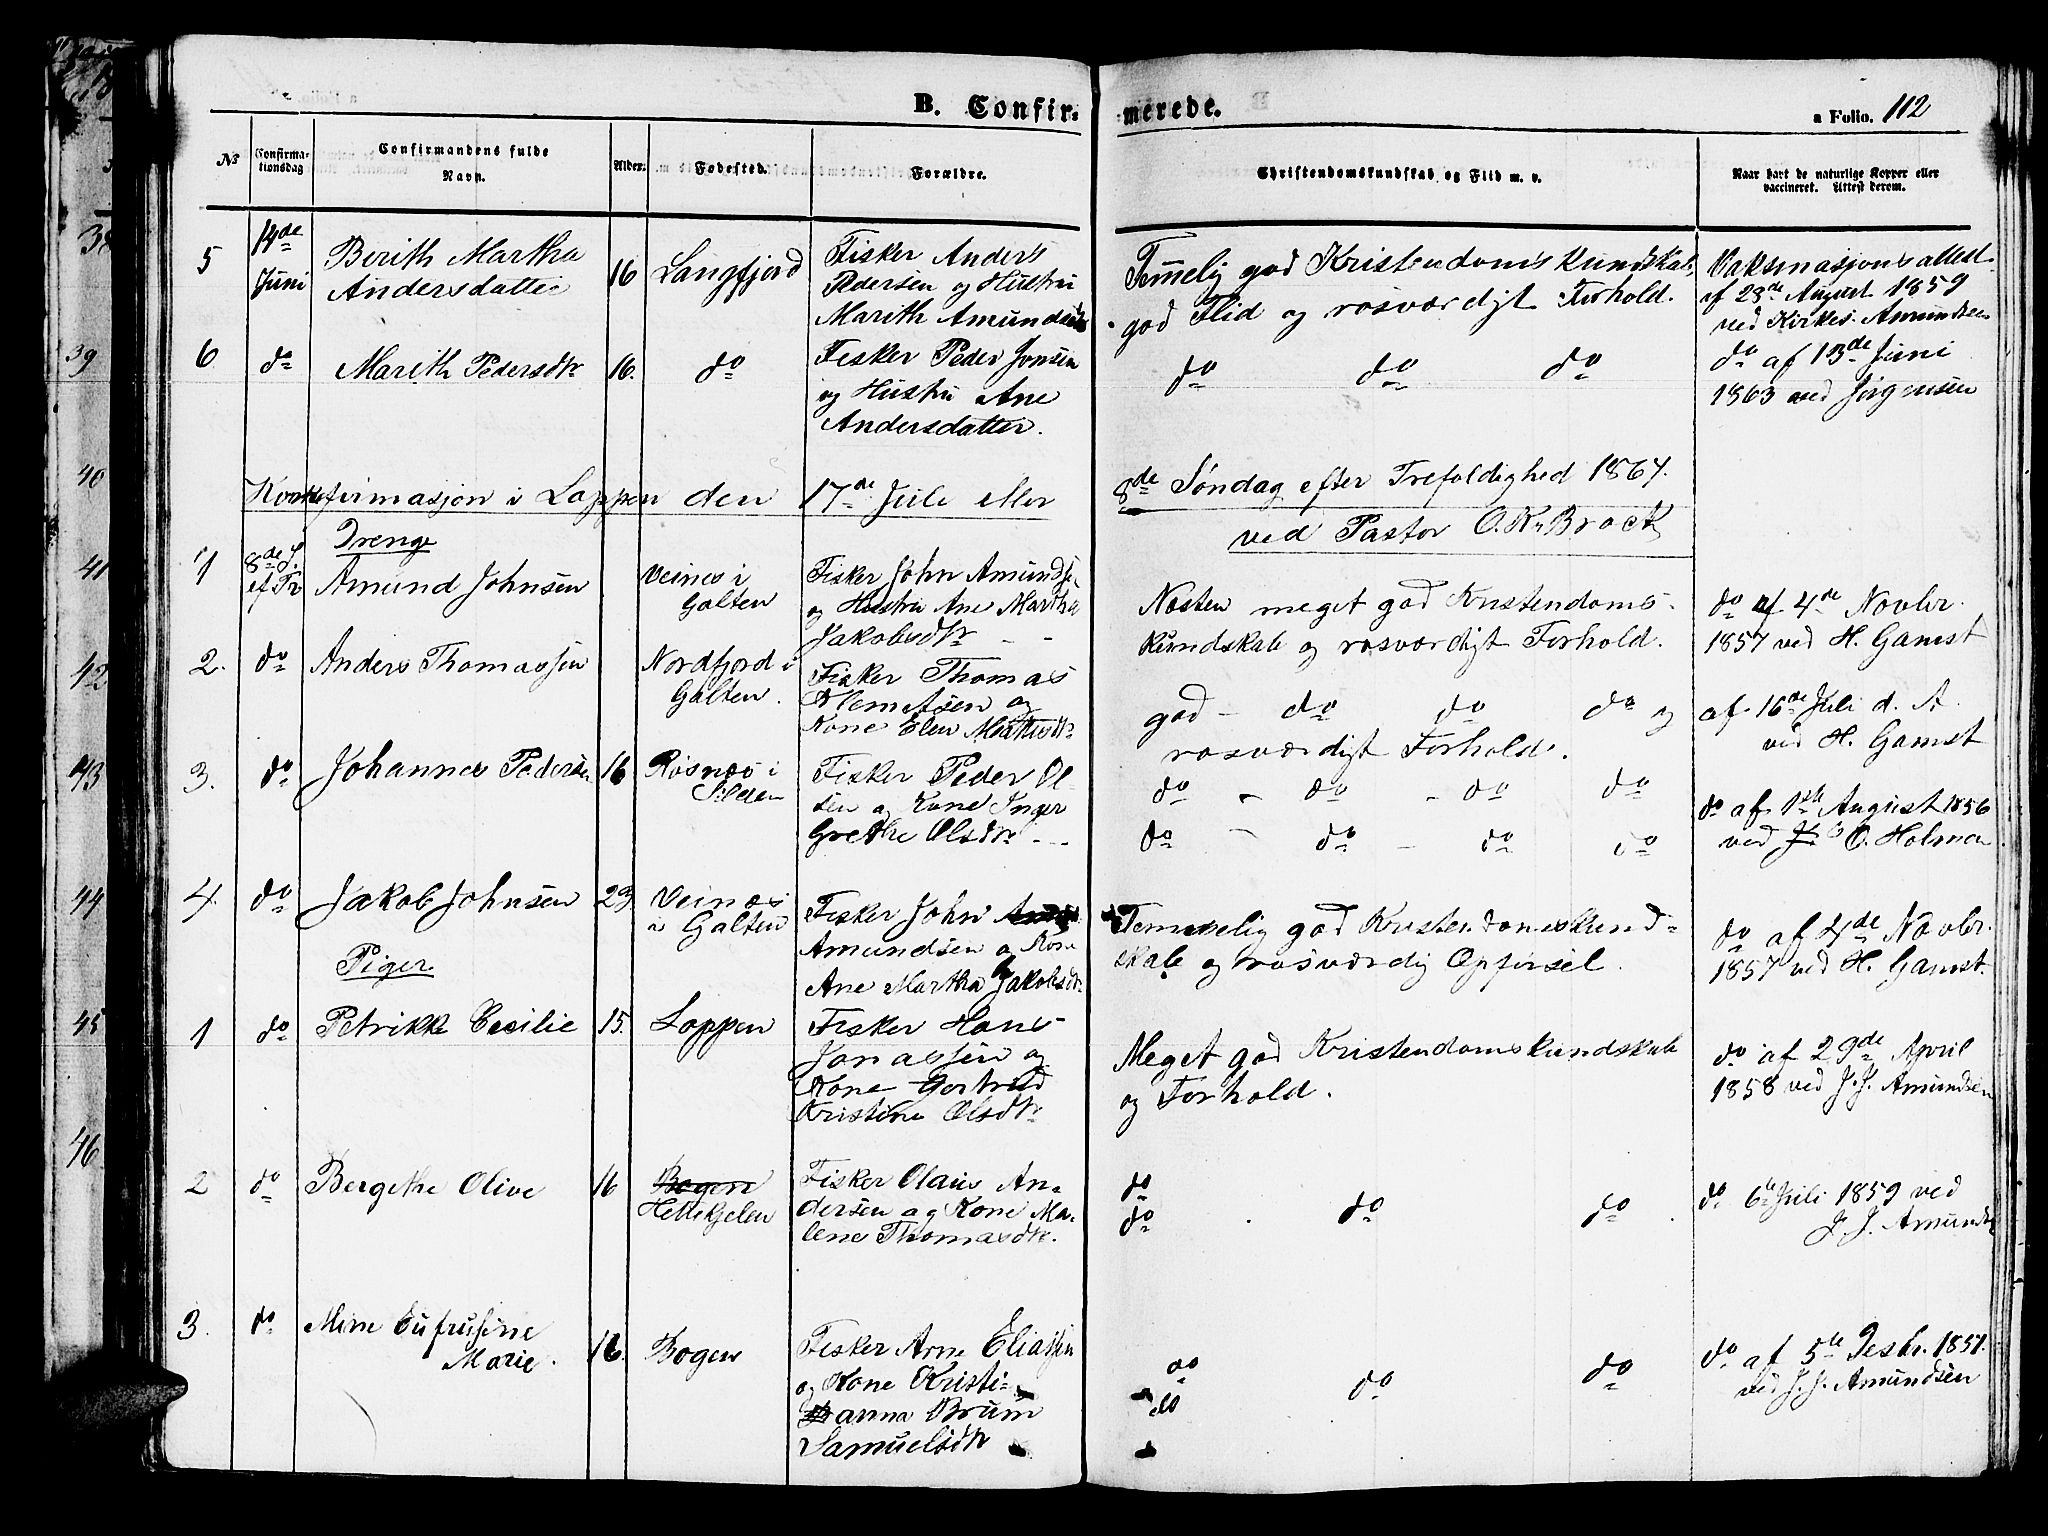 B. Confir-
merede.
a Folio. 112
No
Confirma-
tionsdag
Confirmandens fulde
Navn.
Alder.
Fødested.
Forældre.
Christendomskundskab og Flid m. v.
Naar havt de naturlige Kopper eller
vaccineret. Attest derom.
5
14de
Juni
Berith Martha
Andersdatter
16
Langfjord
Fisker Anders
Pedersen og Hustru
Marith Amundsdtr
Temmelig god Kristendomskundskab,
god Flid og rosværdigt Forhold.
Vaksinasjonsattest
af 23de August 1859
ved Kirkes. Amundsen
6
do
Marith Pedersdtr
16.
do
Fisker Peder Jonsen
og Hustru Ane
Andersdatter.
do do do
do af 13de Juni
1863 ved Jørgensen
Konfirmasjon i Loppen den 17de Juli eller
8de Søndag efter Trefoldighed 1864.
ved Pastor O. Kr Brock
Drenge
1
8de S.
ef Tr
Amund Johnsen
Veines i
Galten
Fisker John Amunds.
og Hustru Ane Martha
Jakobsdtr - -
Næsten meget god Kristendoms-
kundskab og rosværdigt Forhold.
do af 4de Novbr.
1857 ved H. Gamst
2.
do
Anders Thomassen
Nordfjord i
Galten.
Fisker Thomas
Klemetsen og
Kone Elen Mathisdtr
god - do do do og
rosværdigt Forhold.
af 16de Juli d. A.
ved H. Gamst
3.
do
Johannes Pedersen
16
Rosnæs i
Silden
Fisker Peder Ol-
sen og Kone Inger
Grethe Olsdtr - - -
do - do - do do
do - do - do do
do af 1ste August 1856
ved O. Holman
4.
do
Jakob Johnsen
23
Veines i
i Galten
Fisker John
Amundsen og Kone
Ane Martha Jakobsdtr
Temmelig god Kristendomskund-
skab og rosværdig Opførsel.
do af 4de Novbr.
1857 ved H. Gamst.
Piger
1
do
Petrikke Cecilie
15.
Loppen
Fisker Hans
Jonassen og
Kone Gertrud
Kristine Olsdtr
Meget god Kristendomskundskab
og Forhold.
do af 29de April
1858 ved J. J. Amundsen
2
do
Bergethe Olive
16
Bogen
Hellefjelen
Fisker Olaus An-
dersen og Kone Ma-
lene Thomasdtr.
do
do do do
do 6te Juli 1859 ved
J. J. Amundsen
3.
do
Mine Eufrusine
Marie.
16.
Bogen
Fisker Arne Eliassen
og Kone Kristi-
anna Brum
Samuelsdtr
do
do do do
do af 5te Desbr. 1857.
ved J. J. Amundsen
38
39
40
41
42
43
44
45
46